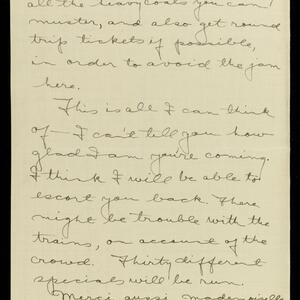 all the heavy coats you can
muster, and also get round
trip tickets if possible,
in order to avoid the jam
here.
This is all I can think
of — I can't tell you how
glad I am you're coming.
I think I will be able to
escort you back. There
might be trouble with the
trains, on account of the
crowd. Thirty different
specials will be run.
Merci aussi, mademoiselle